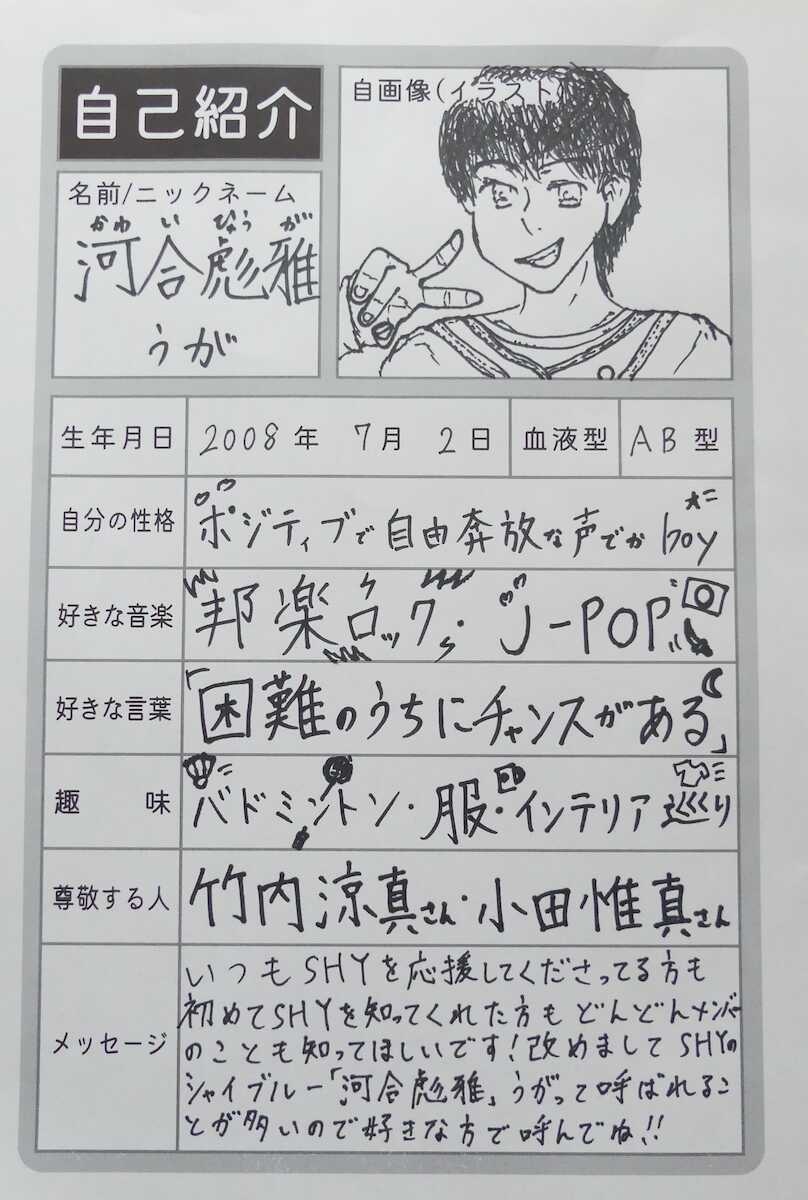 自己紹介
自画像(イラスト)
名前/ニックネーム
かわ い ひょう が
河合彪雅
うが
生年月日 2008年 7月 2日 血液型 AB型
自分の性格 ポジティブで自由奔放な声でかboy
好きな音楽 邦楽ロック・J-POP
好きな言葉 「困難のうちにチャンスがある」
趣味 バドミントン・服・インテリア巡り
尊敬する人 竹内涼真さん・小田惟真さん
メッセージ
いつもSHYを応援してくださってる方も
初めてSHYを知ってくれた方もどんどんメンバー
のことも知ってほしいです!改めましてSHYの
シャイブルー「河合彪雅」うがって呼ばれるこ
とが多いので好きな方で呼んでね!!